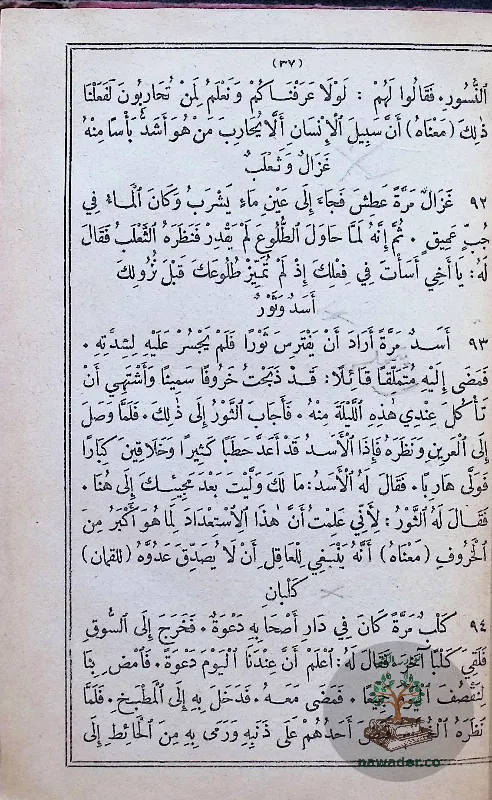 (٣٧)
ٱلنُّسُورِ. فَقَالُوا لَهُمْ : لَوْلَا عَرَفْنَاكُمْ وَنَعْلَمُ لِمَنْ تُحَارِبُونَ لَفَعَلْنَا
ذٰلِكَ (مَعْنَاهُ) أَنَّ سَبِيلَ ٱلْإِنْسَانِ أَلَّا يُحَارِبَ مَنْ هُوَ أَشَدُّ بَأْسًا مِنْهُ
غَزَالٌ وَثَعْلَبٌ
٩٢ غَزَالٌ مَرَّةً عَطِشَ فَجَاءَ إِلَى عَيْنِ مَاءٍ يَشْرَبُ وَكَانَ ٱلْمَاءُ فِي
جُبٍّ عَمِيقٍ. ثُمَّ إِنَّهُ لَمَّا حَاوَلَ ٱلطُّلُوعَ لَمْ يَقْدِرْ فَنَظَرَهُ ٱلثَّعْلَبُ فَقَالَ
لَهُ: يَا أَخِي أَسَأْتَ فِي فِعْلِكَ إِذْ لَمْ تُمَيِّزْ طُلُوعَكَ قَبْلَ نُزُولِكَ
أَسَدٌ وَثَوْرٌ
٩٣ أَسَدٌ مَرَّةً أَرَادَ أَنْ يَفْتَرِسَ ثَوْرًا فَلَمْ يَجْسُرْ عَلَيْهِ لِشِدَّتِهِ.
فَمَضَى إِلَيْهِ مُتَمَلِّقًا قَائِلًا: قَدْ ذَبَحْتُ خَرُوفًا سَمِينًا وَأَشْتَهِي أَنْ
تَأْكُلَ عِنْدِي هٰذِهِ ٱللَّيْلَةَ مِنْهُ. فَأَجَابَ ٱلثَّوْرُ إِلَى ذٰلِكَ. فَلَمَّا وَصَلَ
إِلَى ٱلْعَرِينِ وَنَظَرَهُ فَإِذَا ٱلْأَسَدُ قَدْ أَعَدَّ حَطَبًا كَثِيرًا وَخَلَاقِينَ كِبَارًا
فَوَلَّى هَارِبًا. فَقَالَ لَهُ ٱلْأَسَدُ: مَا لَكَ وَلَّيْتَ بَعْدَ مَجِيئِكَ إِلَى هُنَا.
فَقَالَ لَهُ ٱلثَّوْرُ: لِأَنِّي عَلِمْتُ أَنَّ هٰذَا ٱلْاِسْتِعْدَادَ لِمَا هُوَ أَكْبَرُ مِنَ
ٱلْخَرُوفِ (مَعْنَاهُ) أَنَّهُ يَنْبَغِي لِلْعَاقِلِ أَنْ لَا يُصَدِّقَ عَدُوَّهُ (للقمان)
كَلْبَانِ
٩٤ كَلْبٌ مَرَّةً كَانَ فِي دَارِ أَصْحَابِهِ دَعْوَةٌ. فَخَرَجَ إِلَى ٱلسُّوقِ
فَلَقِيَ كَلْبًا آخَرَ فَقَالَ لَهُ: ٱعْلَمْ أَنَّ عِنْدَنَا ٱلْيَوْمَ دَعْوَةً. فَٱمْضِ بِنَا
لِنَقْصِفَ فَمَضَى مَعَهُ. فَدَخَلَ بِهِ إِلَى ٱلْمَطْبَخِ. فَلَمَّا
نَظَرَهُ أَحَدُهُمْ عَلَى ذَنَبِهِ وَرَمَى بِهِ مِنَ ٱلْحَائِطِ إِلَى
nawader.co